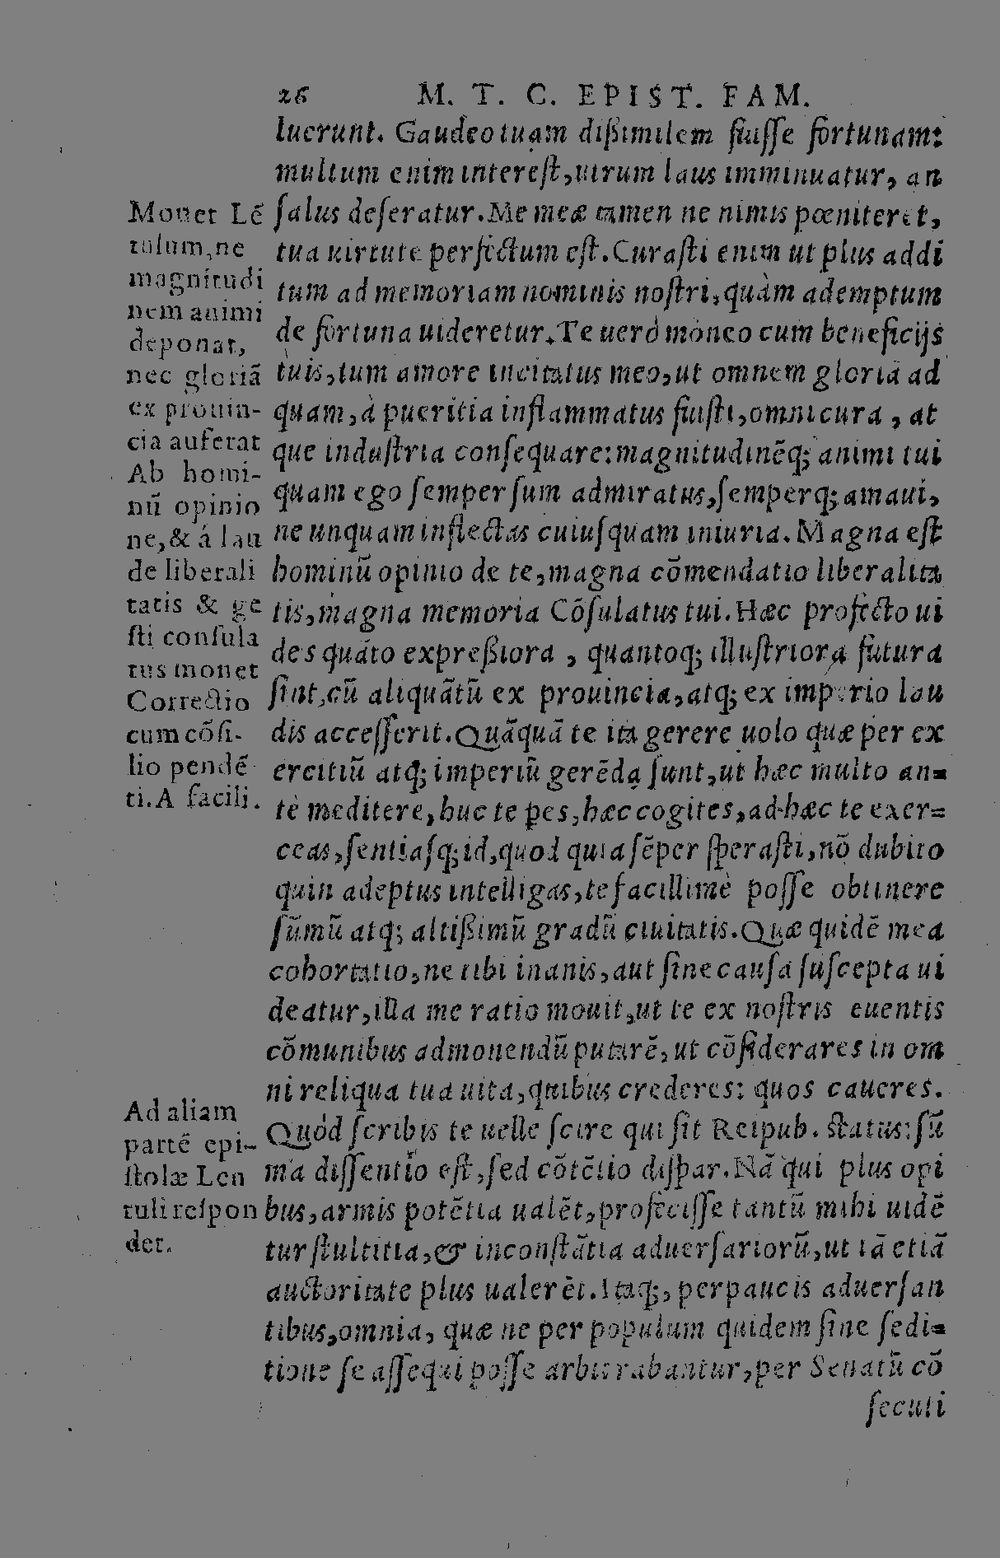 26 M. T. C. EPIST. FAM.
luerunt. Gaudeo tuam dißimilem fuiſſe fortunam:
multum enim intereſt, utrum laus imminuatur, an
ſalus deſeratur. Me meæ tamen ne nimis pœniteret,
tua uirtute perfectum eſt. Curaſti enim ut plus addi
tum ad memoriam nominis noſtri, quàm ademptum
de fortuna uideretur. Te uerò moneo cum beneficijs
tuis, tum amore incitatus meo, ut omnem gloriā ad
quam, à pueritia inflammatus fuiſti, omni cura, at
que induſtria conſequare: magnitudinēq; animi tui
quam ego ſemper ſum admiratus, ſemperq; amaui,
ne unquam inflectas cuiuſquam iniuria. Magna eſt
hominū opinio de te, magna cōmendatio liberalita
tis, magna memoria Cōſulatus tui. Hæc profecto ui
des quāto expreßiora, quantoq; illuſtriora futura
ſint, cū aliquātū ex prouincia, atq; ex imperio lau
dis acceſſerit. Quāquā te ita gerere uolo quæ per ex
ercitiū atq; imperiū gerēda ſunt, ut hæc multo an=
tè meditere, huc te pes, hæc cogites, ad hæc te exer=
ceas, ſentiaſq; id, quod quia ſēper ſperaſti, nō dubito
quin adeptus intelligas, te facillimè poſſe obtinere
ſūmū atq; altißimū gradū ciuitatis. Quæ quidē mea
cohortatio, ne tibi inanis, aut ſine cauſa ſuſcepta ui
deatur, illa me ratio mouit, ut te ex noſtris euentis
cōmunibus admonendū putarē, ut cōſiderares in om
ni reliqua tua uita, quibus crederes: quos caueres.
Quòd ſcribis te uelle ſcire qui ſit Reipub. ſtatus: ſū
ma diſſentio eſt, ſed cōtētio diſpar. Nā qui plus opi
bus, armis potētia ualēt, profeciſſe tantū mihi uidē
tur ſtultitia, & inconſtātia aduerſariorū, ut iā etiā
auctoritate plus ualerēt. Itaq;, perpaucis aduerſan
tibus, omnia, quæ ne per populum quidem ſine ſedi=
tione ſe aſſequi poſſe arbitrabantur, per Senatū cō
ſecuti
Monet Lē
tulum, ne
magnitudi
nem animi
deponat,
nec gloriā
ex prouin-
cia auferat
Ab homi-
nū opinio
ne, & á lau
de liberali
tatis & ge
ſti conſula
tus monet
Correctio
cum cōſi-
lio pendē
ti. A facili.
Ad aliam
partē epi-
ſtolæ Len
tuli reſpon
det.